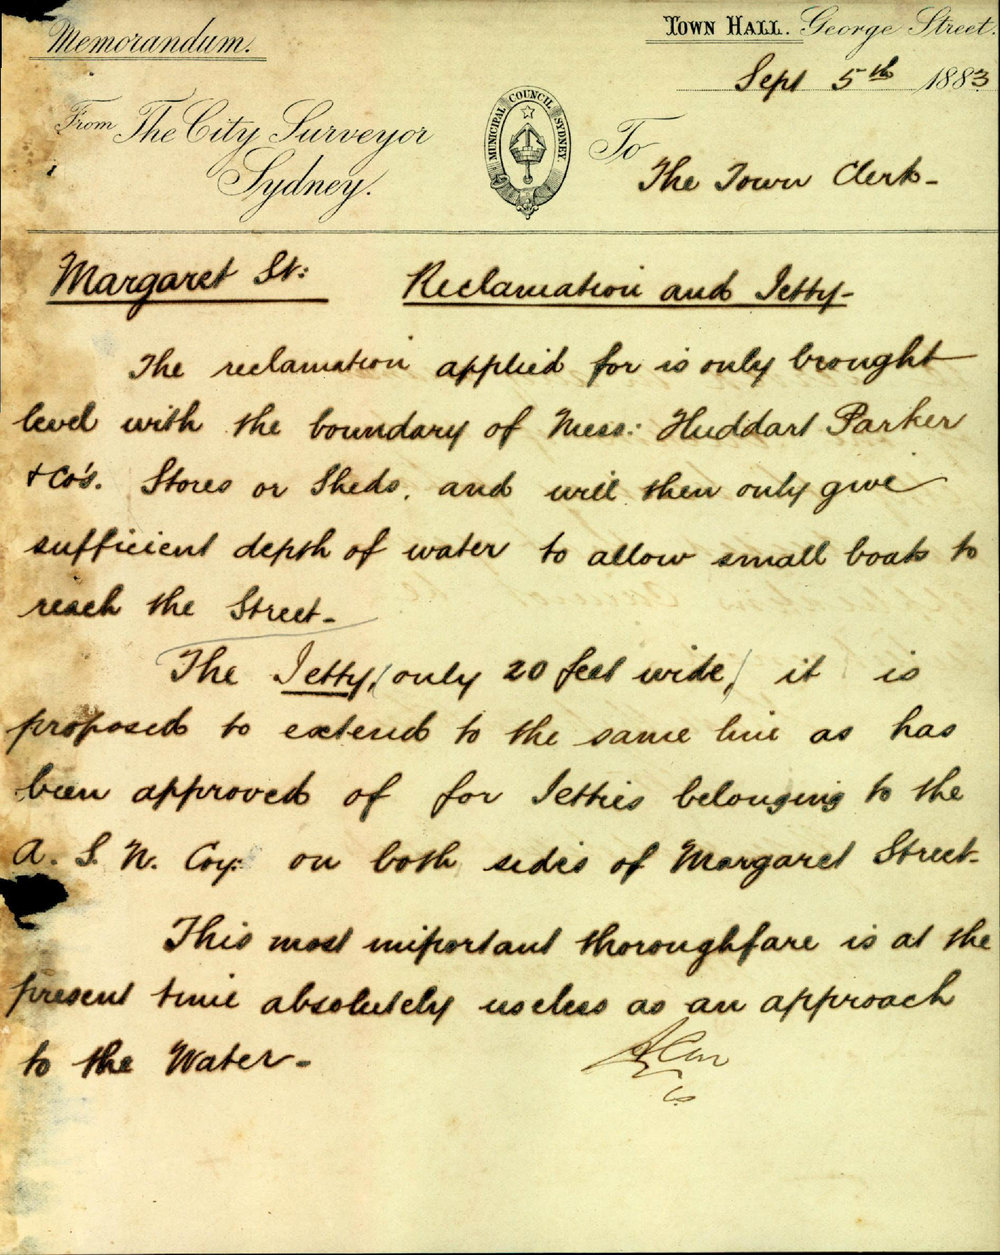 Memorandum.
TOWN HALL. George Street.
Sept 5th 1883
From The City Surveyor
Sydney.
MUNICIPAL COUNCIL SYDNEY
To
The Town Clerk -
Margaret St: Reclamation and Jetty -
The reclamation applied for is only brought
level with the boundary of Mess: Huddart Parker
& Co's. Stores or Sheds, and will then only give
sufficient depth of water to allow small boats to
reach the Street -
The Jetty, (only 20 feet wide,) it is
proposed to extend to the same line as has
been approved of for Jetties belonging to the
A. S. N. Coy: on both sides of Margaret Street -
This most important thoroughfare is at the
present time absolutely useless as an approach
to the Water -